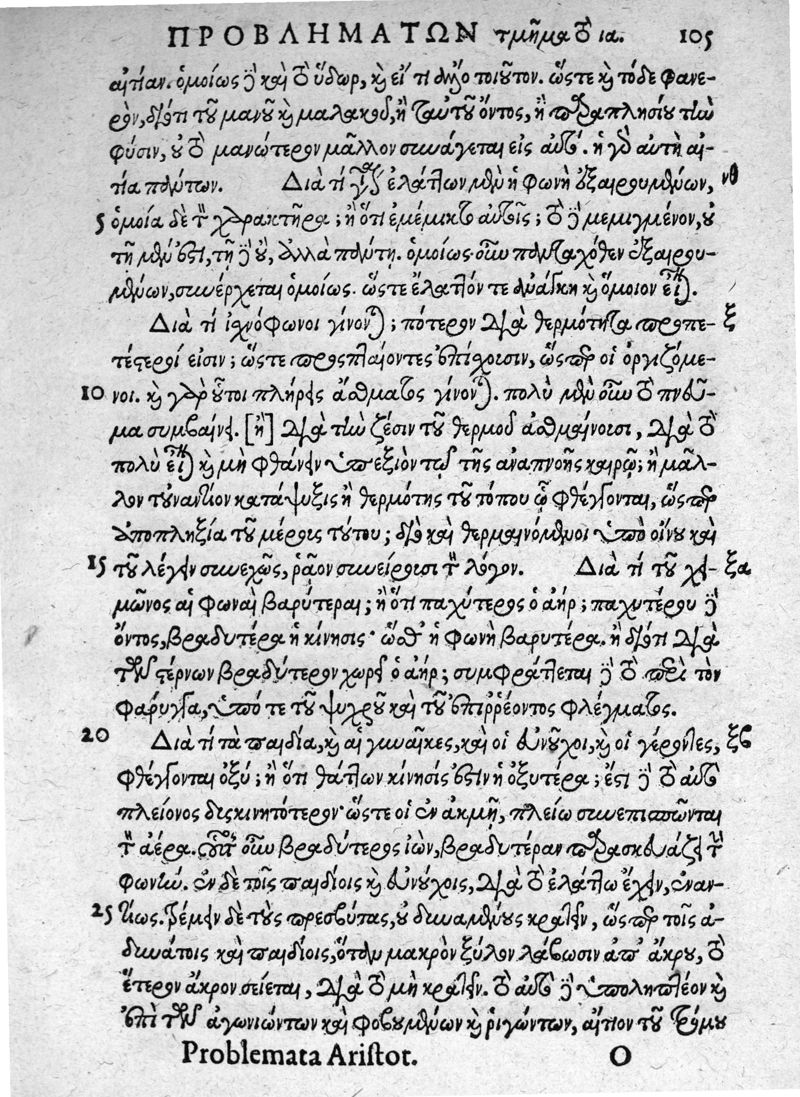 ΠΡΟΒΛΗΜΑΤΩΝ τμῆμα τὸ ια. 105
αἰτίαν. ὁμοίως δὲ καὶ τὸ ὕδωρ, καὶ εἴ τι ἄλλο τοιοῦτον. ὥστε καὶ τόδε φανε-
ρὸν, διότι τοῦ μανοῦ καὶ μαλακοῦ, ἢ ταὐτοῦ ὄντος, ἢ παραπλησίου τὴν
φύσιν, οὗ τὸ μανώτερον μᾶλλον συνάγεται εἰς αὑτό. ἡ γὰρ αὐτὴ αἰ-
τία πάντων. Διὰ τί ἐλάττων μὲν ἡ φωνὴ ἐξαιρουμένων, νθ
5 ὁμοία δὲ τὸν χαρακτῆρα; ἢ ὅτι ἐμέμικτο αὐταῖς; τὸ δὲ μεμιγμένον, οὐ
τῇ μὲν ἐστι, τῇ δὲ οὔ, ἀλλὰ πάντῃ. ὁμοίως οὖν πανταχόθεν ἐξαιρου-
μένων, συνέρχεται ὁμοίως. ὥστε ἔλαττόν τε ἀνάγκη καὶ ὅμοιον εἶναι.
Διὰ τί ἰχνόφωνοι γίνονται; πότερον διὰ θερμότητα προπε- ξ
τέστεροί εἰσιν; ὥστε προσπταίοντες ἐπίσχουσιν, ὥσπερ οἱ ὀργιζόμε-
10 νοι. καὶ γὰρ οὗτοι πλήρεις ἄσθματος γίνονται. πολὺ μὲν οὖν τὸ πνεῦ-
μα συμβαίνει. [ἢ] διὰ τὴν ζέσιν τοῦ θερμοῦ ἀσθμαίνουσι, διὰ τὸ
πολὺ εἶναι καὶ μὴ φθάνειν ὑπεξιὸν τῷ τῆς ἀναπνοῆς καιρῷ; ἢ μᾶλ-
λον τοὐναντίον κατάψυξις ἢ θερμότης τοῦ τόπου ᾧ φθέγγονται, ὥσπερ
ἀποπληξία τοῦ μέρους τούτου; διὸ καὶ θερμαινόμενοι ὑπὸ οἴνου καὶ
15 τοῦ λέγειν συνεχῶς, ῥᾷον συνείρουσι τὸν λόγον. Διὰ τί τοῦ χει- ξα
μῶνος αἱ φωναὶ βαρύτεραι; ἢ ὅτι παχύτερος ὁ ἀήρ; παχυτέρου δὲ
ὄντος, βραδυτέρα ἡ κίνησις· ὥσθ' ἡ φωνὴ βαρυτέρα. ἢ διότι διὰ
τῶν στέρνων βραδύτερον χωρεῖ ὁ ἀήρ; συμφράττεται δὲ τὸ περὶ τὸν
φάρυγγα, ὑπό τε τοῦ ψυχροῦ καὶ τοῦ ἐπιρρέοντος φλέγματος.
20 Διὰ τί τὰ παιδία, καὶ αἱ γυναῖκες, καὶ οἱ εὐνοῦχοι, καὶ οἱ γέροντες, ξβ
φθέγγονται ὀξύ; ἢ ὅτι θάττων κίνησίς ἐστιν ἡ ὀξυτέρα; ἔστι δὲ τὸ αὐτὸ
πλείονος δυσκινητότερον· ὥστε οἱ ἐν ἀκμῇ, πλείω συνεπισπῶνται
τὸν ἀέρα. οὗτος οὖν βραδύτερος ἰὼν, βραδυτέραν παρασκευάζει τὴν
φωνήν. ἐν δὲ τοῖς παιδίοις καὶ εὐνούχοις, διὰ τὸ ἐλάττω ἔχειν, ἐναν-
25 τίως. τρέμειν δὲ τοὺς πρεσβύτας, οὐ δυναμένους κρατεῖν, ὥσπερ τοῖς ἀ-
δυνάτοις καὶ παιδίοις, ὅταν μακρὸν ξύλον λάβωσιν ἀπ' ἄκρου, τὸ
ἕτερον ἄκρον σείεται, διὰ τὸ μὴ κρατεῖν. τὸ αὐτὸ δὲ ὑποληπτέον καὶ
ἐπὶ τῶν ἀγωνιώντων καὶ φοβουμένων καὶ ῥιγώντων, αἴτιον τοῦ τρόμου
Problemata Aristot. O